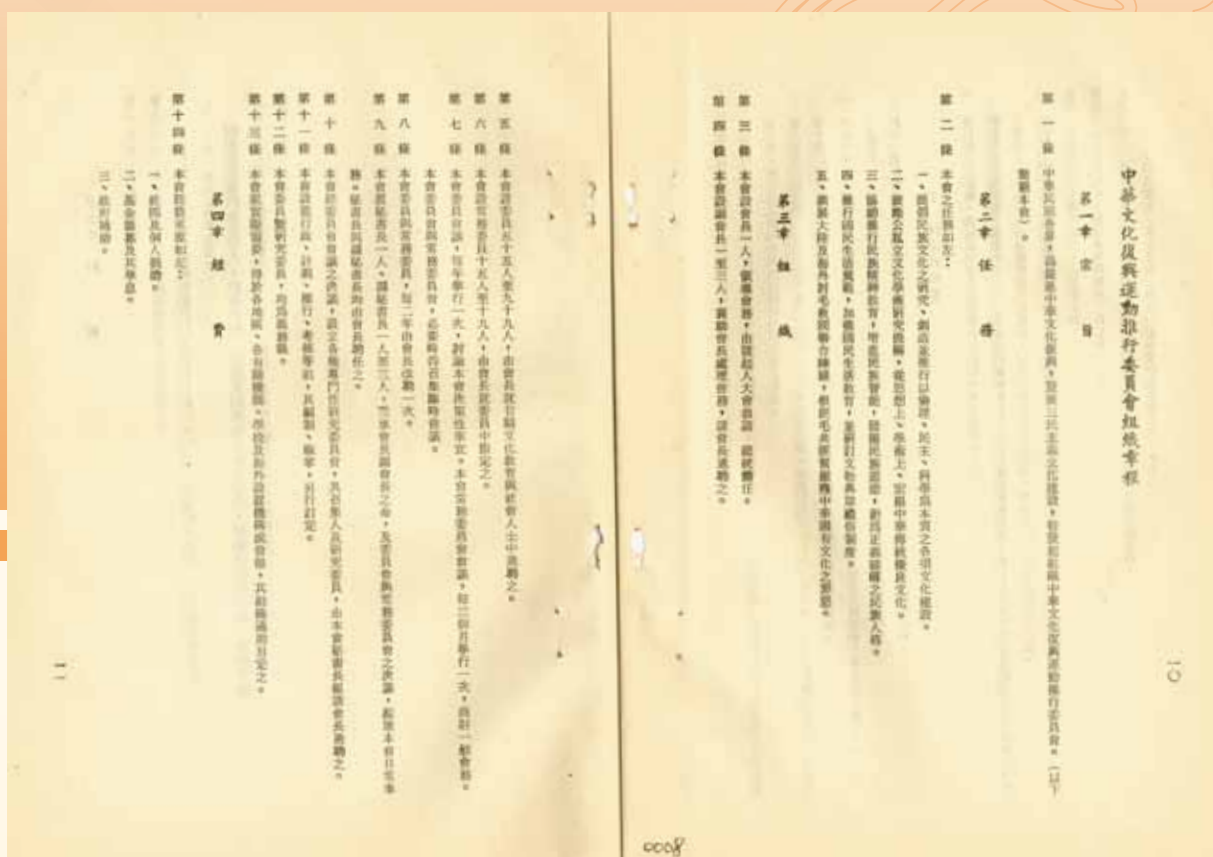 一〇
中華文化復興運動推行委員會組織章程
第一章 宗 旨
第 一 條 中華民國各界,為促進中華文化復興,發展三民主義文化建設,特發起組織中華文化復興運動推行委員會。(以下
簡稱本會)。
第二章 任 務
第 二 條 本會之任務如左:
一、
民族文化之研究、創造並推行以倫理、民主、科學為本質之各項文化建設。
二、
公私立文化學術研究機構,從思想上、學術上、宏揚中華傳統優良文化。
三、協助推行民族精神教育,增進民族智能,發揚民族道德,
四、推行國民生活規範,加強國民生活教育,並研訂文物典章禮俗制度。
五、擴展大陸及海外討毛救國聯合陣線,
中華固有文化之罪惡。
第三章 組 織
第 三 條 本會設會長一人,領導會務,由發起人大會恭請 總統擔任。
第 四 條 本會設副會長一至三人,襄助會長處理會務,請會長遴聘之。
第 五 條 本會設委員五十五人至九十九人,由會長就有關文化教育與社會人士中遴聘之。
第 六 條 本會設常務委員十五人至十九人,由會長就委員中指定之。
第 七 條 本會委員會議,每年舉行一次,討論本會決策性事宜。本會常務委員會會議,每二個月舉行一次,商討一般會務。
本會委員會與常務委員會,必要時得召集臨時會議。
第 八 條 本會委員與常務委員,每二年由會長改聘一次。
第 九 條 本會置秘書長一人、副秘書長一人至三人,
會長副會長之命,及委員會與常務委員會之決議,處理本會日常事
務。秘書長與副秘書長均由會長聘任之。
第 十 條 本會經委員會會議之決議,設立各種專門性研究委員會,其召集人及研究委員,由本會秘書長報請會長遴聘之。
第十一條 本會設
行政、計劃、推行、考核等組,其編制、職掌,另行訂定。
第十二條 本會委員暨研究委員,均為義務職。
第十三條 本會視實際需要,得於各地區、各有關機關、學校及海外設置機構或會組,其組織通則另定之。
第四章 經 費
第十四條 本會經費來源如左:
一、社團及個人捐贈。
二、基金籌募及其孳息。
三、政府補助。
一一
0008